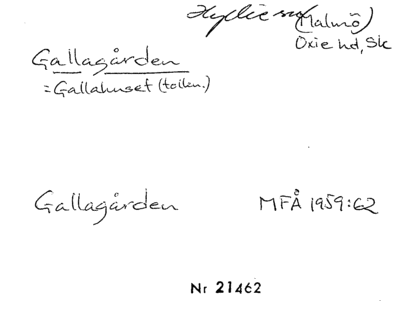 Hyllie sn (Malmö)
Oxie hd, Sk
Gallagården
= Gallahuset (tolkn.)
Gallagården MFÅ 1959:62
Nr 21462